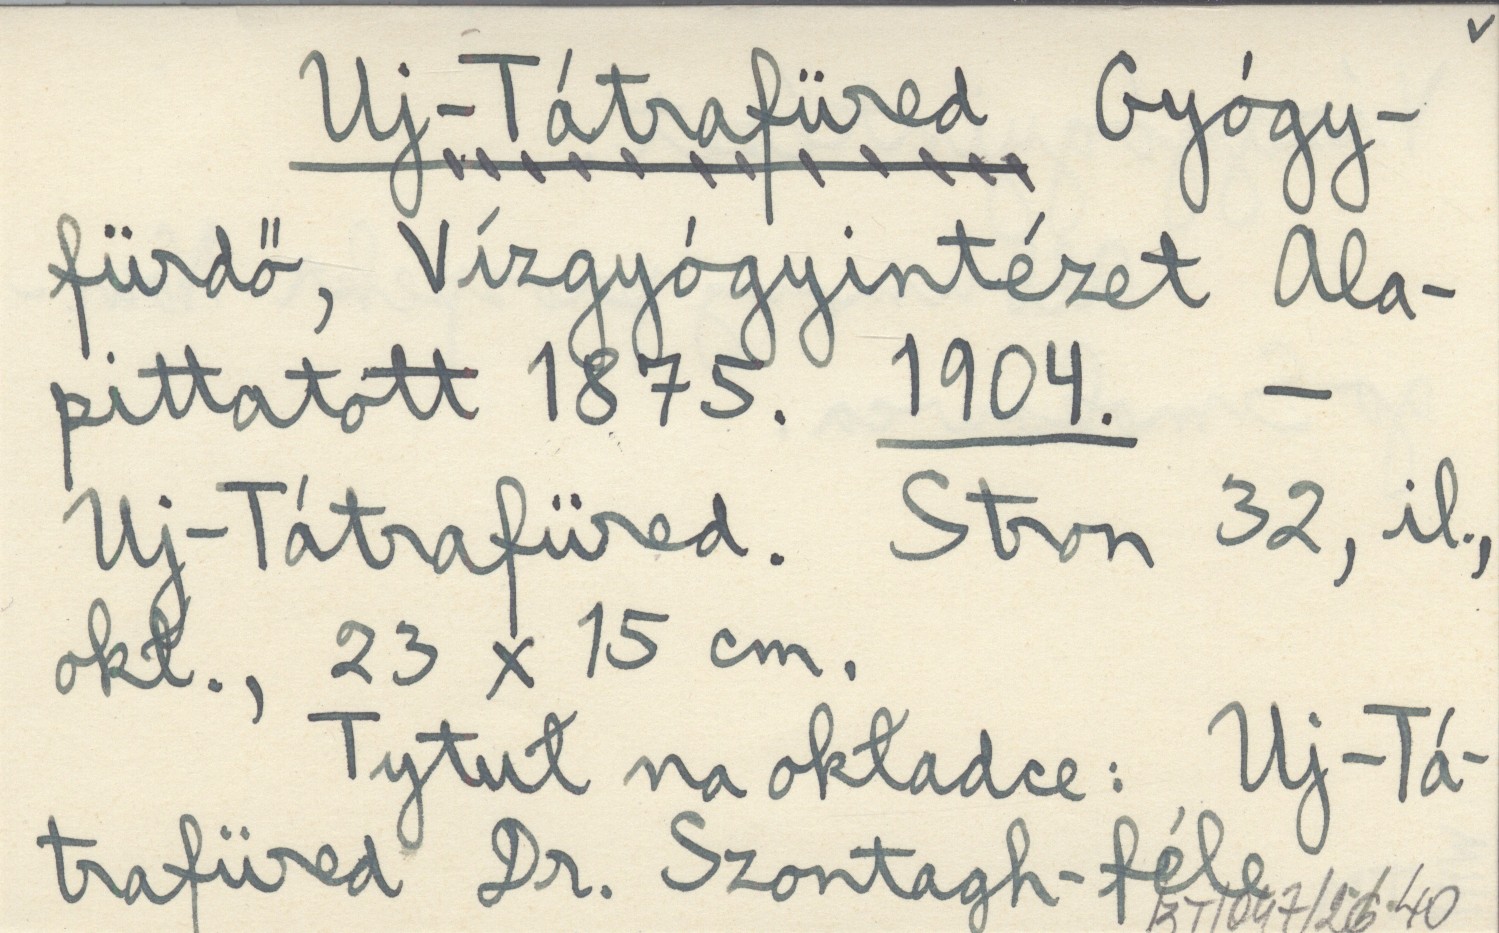 Uj-Tátrafüred Gyógy-
fürdő, Vízgyógyintézet Ala-
pittatott 1875. 1904. —
Uj-Tátrafüred. Stron 32, il.,
okł., 23 x 15 cm.
Tytuł na okładce: Uj-Tá-
trafüred Dr. Szontagh-féle